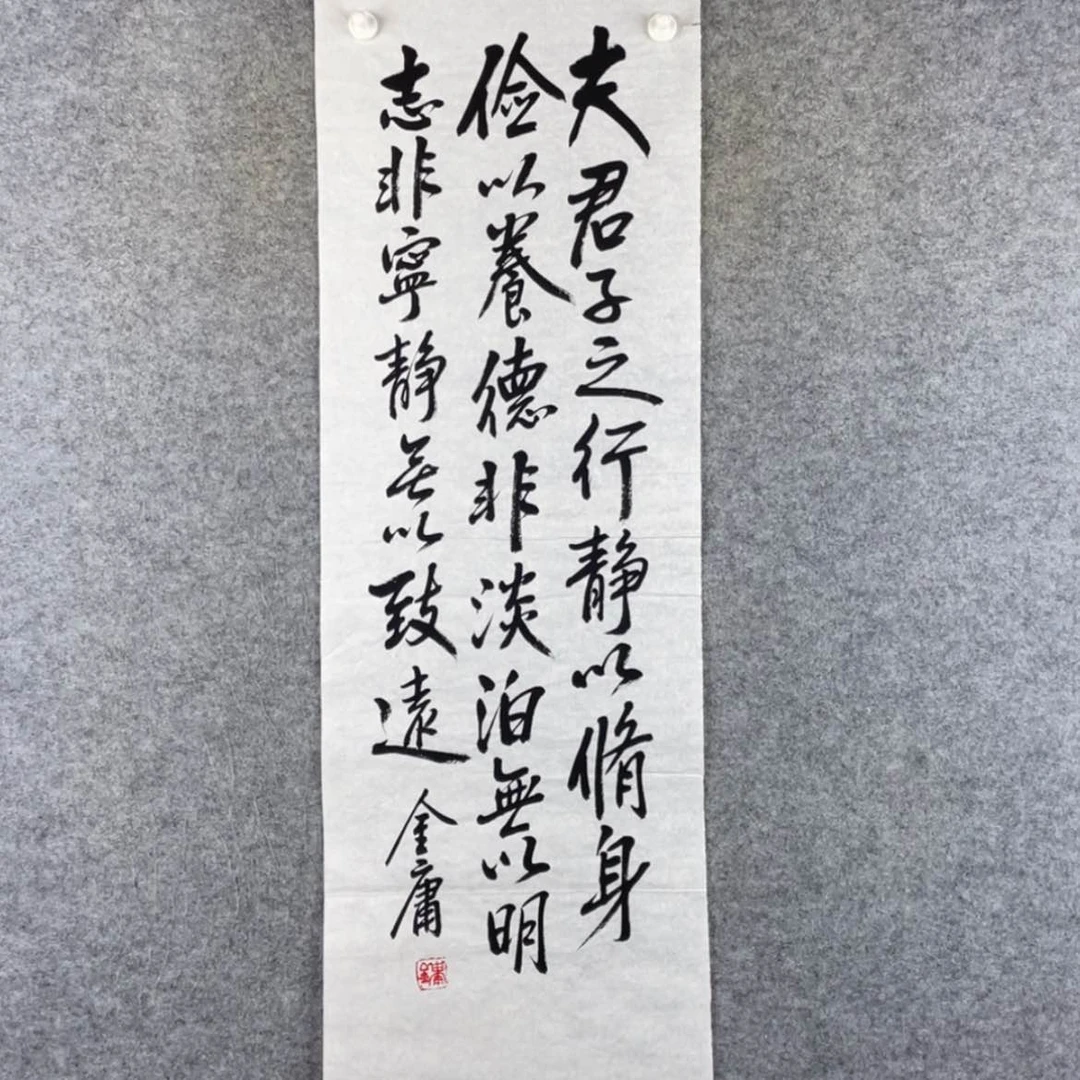 夫君子之行静以脩身
儉以養德非淡泊無以明
志非寧静无以致遠
金庸